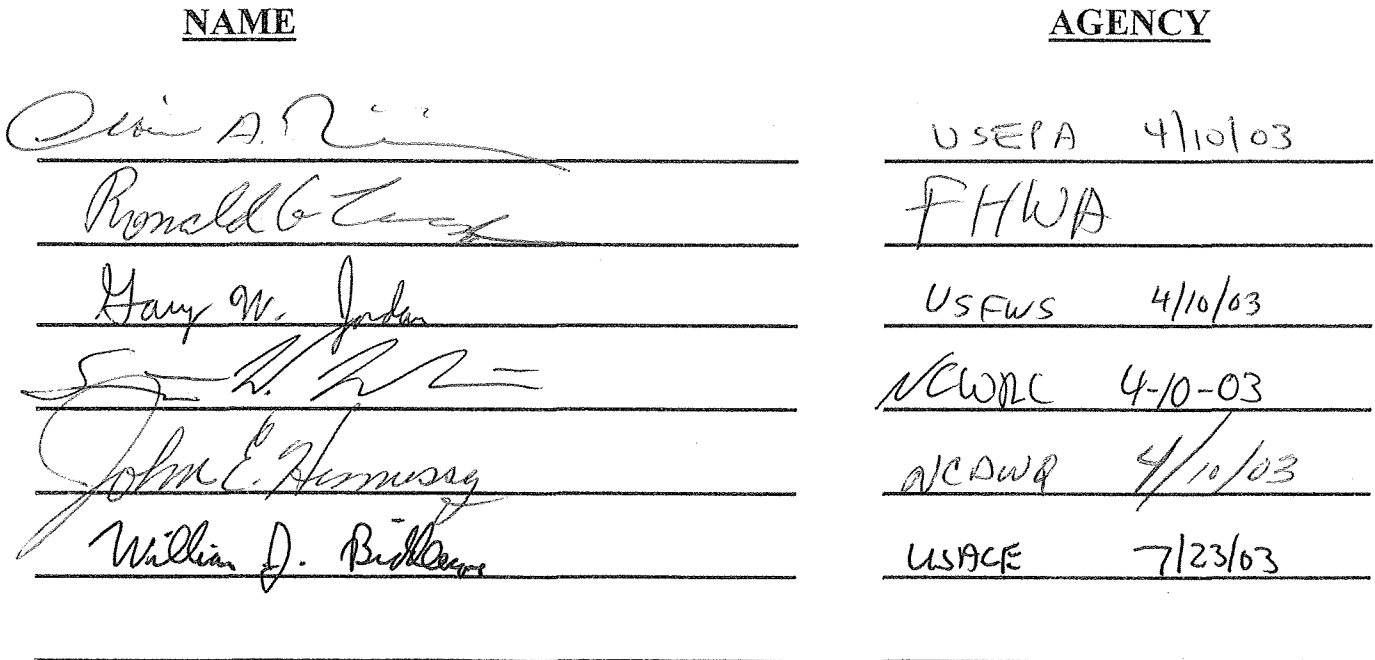 NAME AGENCY
A. USEPA 4/10/03
Ronald G FHWA
Gary W. Jordan USFWS 4/10/03
W. NCWRC 4-10-03
John E. Hennessy NCDWQ 4/10/03
William J. USACE 7/23/03